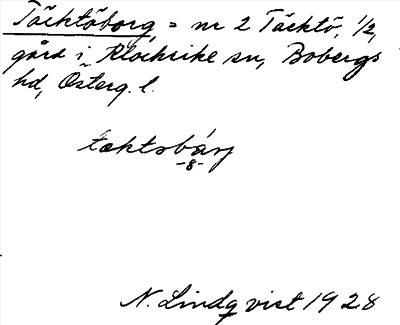 Täcktöborg = nr 2 Täcktö, 1/2
gård i Klockrike sn, Bobergs
hd, Österg. l.
tæktsbårj
-8-
N. Lindqvist 1928